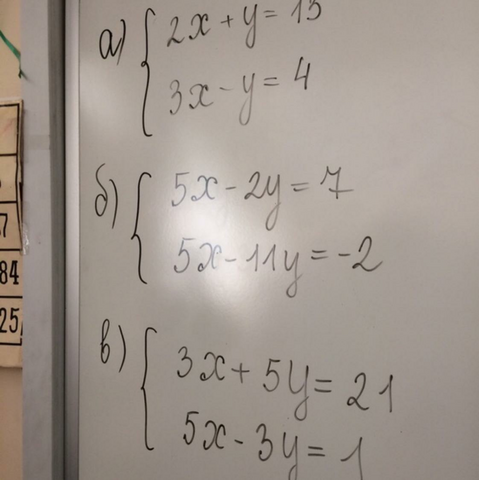 а) 2x + y = 13
3x - y = 4
б) 5x - 2y = 7
5x - 11y = -2
в) 3x + 5y = 21
5x - 3y = 1
7
84
25